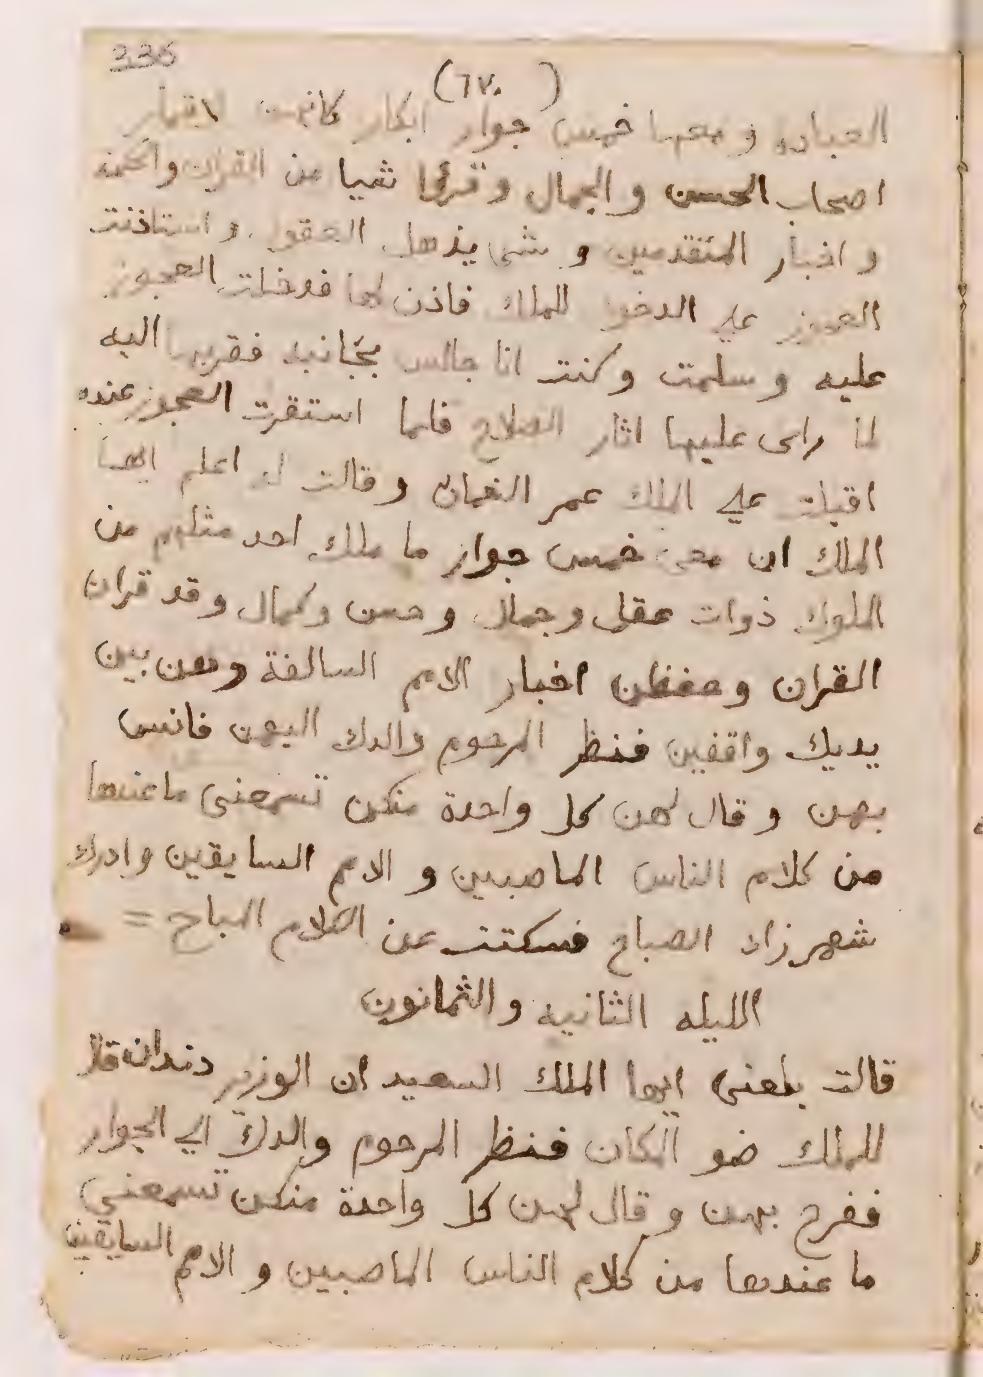 336
(٦٧٠)
العباده ومعها خمس جوار ابكار كانهن الاقمار
اصحاب الحسن والجمال وقرئوا شيا من القران والحكمه
واخبار المتقدمين وشى يذهل العقول واستاذنت
العجوز علي الدخول للملك فاذن لها فدخلت العجوز
عليه وسلمت وكنت انا جالس بجانبه فقربها اليه
لما راى عليها اثار الصلاح فلما استقرت العجوز عنده
اقبلت علي الملك عمر النعمان وقالت له اعلم ايها
الملك ان معى خمس جوار ما ملك احد مثلهم من
الملوك ذوات عقل وجمال وحسن وكمال وقد قران
القران وحفظن اخبار الامم السالفة وهن بين
يديك واقفين فنظر المرحوم والدك اليهن فانس
بهن وقال لهن كل واحدة منكن تسمعنى ما عندها
من كلام الناس الماضيين والامم السايقين وادرك
شهرزاد الصباح فسكتت عن الكلام المباح =
الليله الثانيه والثمانون
قالت بلغنى ايها الملك السعيد ان الوزير دندان قال
للملك ضو المكان فنظر المرحوم والدك الي الجوار
ففرح بهن وقال لهن كل واحدة منكن تسمعني
ما عندها من كلام الناس الماضيين والامم السايقين